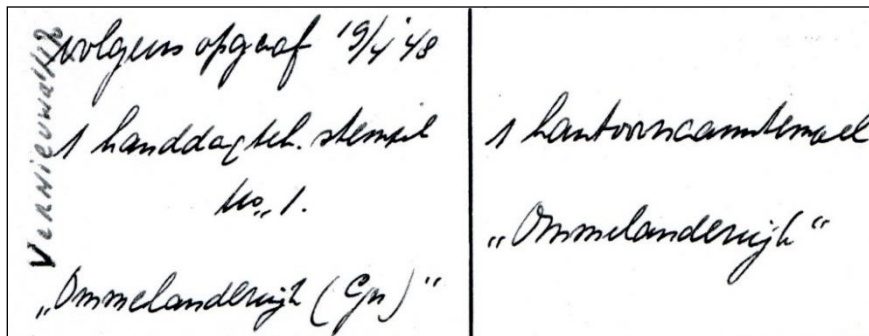 Vernieuwd
volgens opgaaf 19/4 '48
1 handdagteh. stempel
No. 1.
„Ommelanderwijk (Gn)"
1 kantoornaamstempel
„Ommelanderwijk"